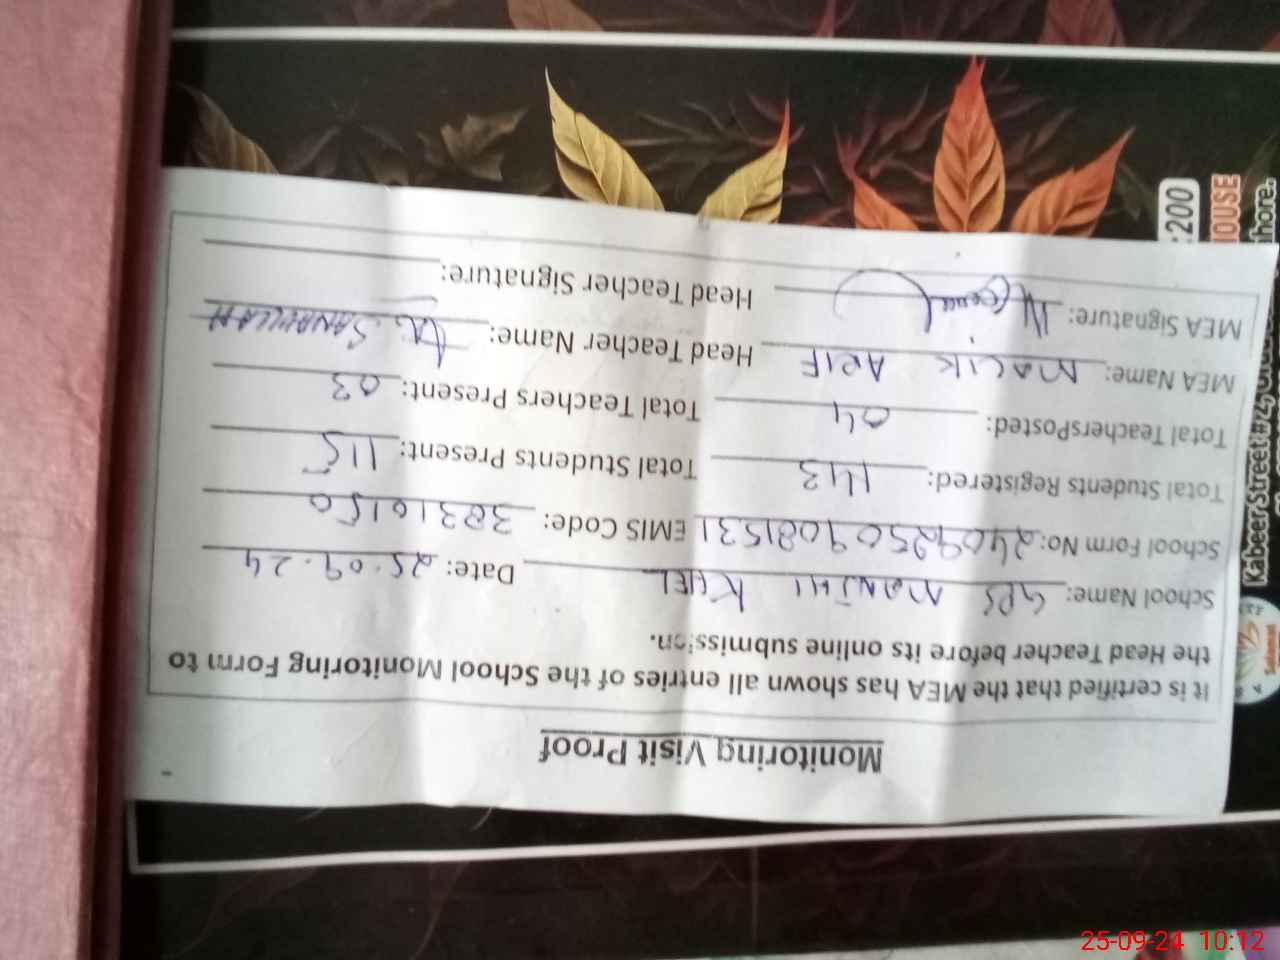 Monitoring Visit Proof
It is certified that the MEA has shown all entries of the School Monitoring Form to
the Head Teacher before its online submission.
School Name: GPS MANJHI KHEL Date: 25.09.24
School Form No: 24092509081531 EMIS Code: 38310150
Total Students Registered: 143 Total Students Present: 115
Total TeachersPosted: 04 Total Teachers Present: 03
MEA Name: MALIK ARIF Head Teacher Name: SANAULLAH
MEA Signature: Head Teacher Signature:
:200
HOUSE
hore.
Kabeer Street #
25-09-24 10:12